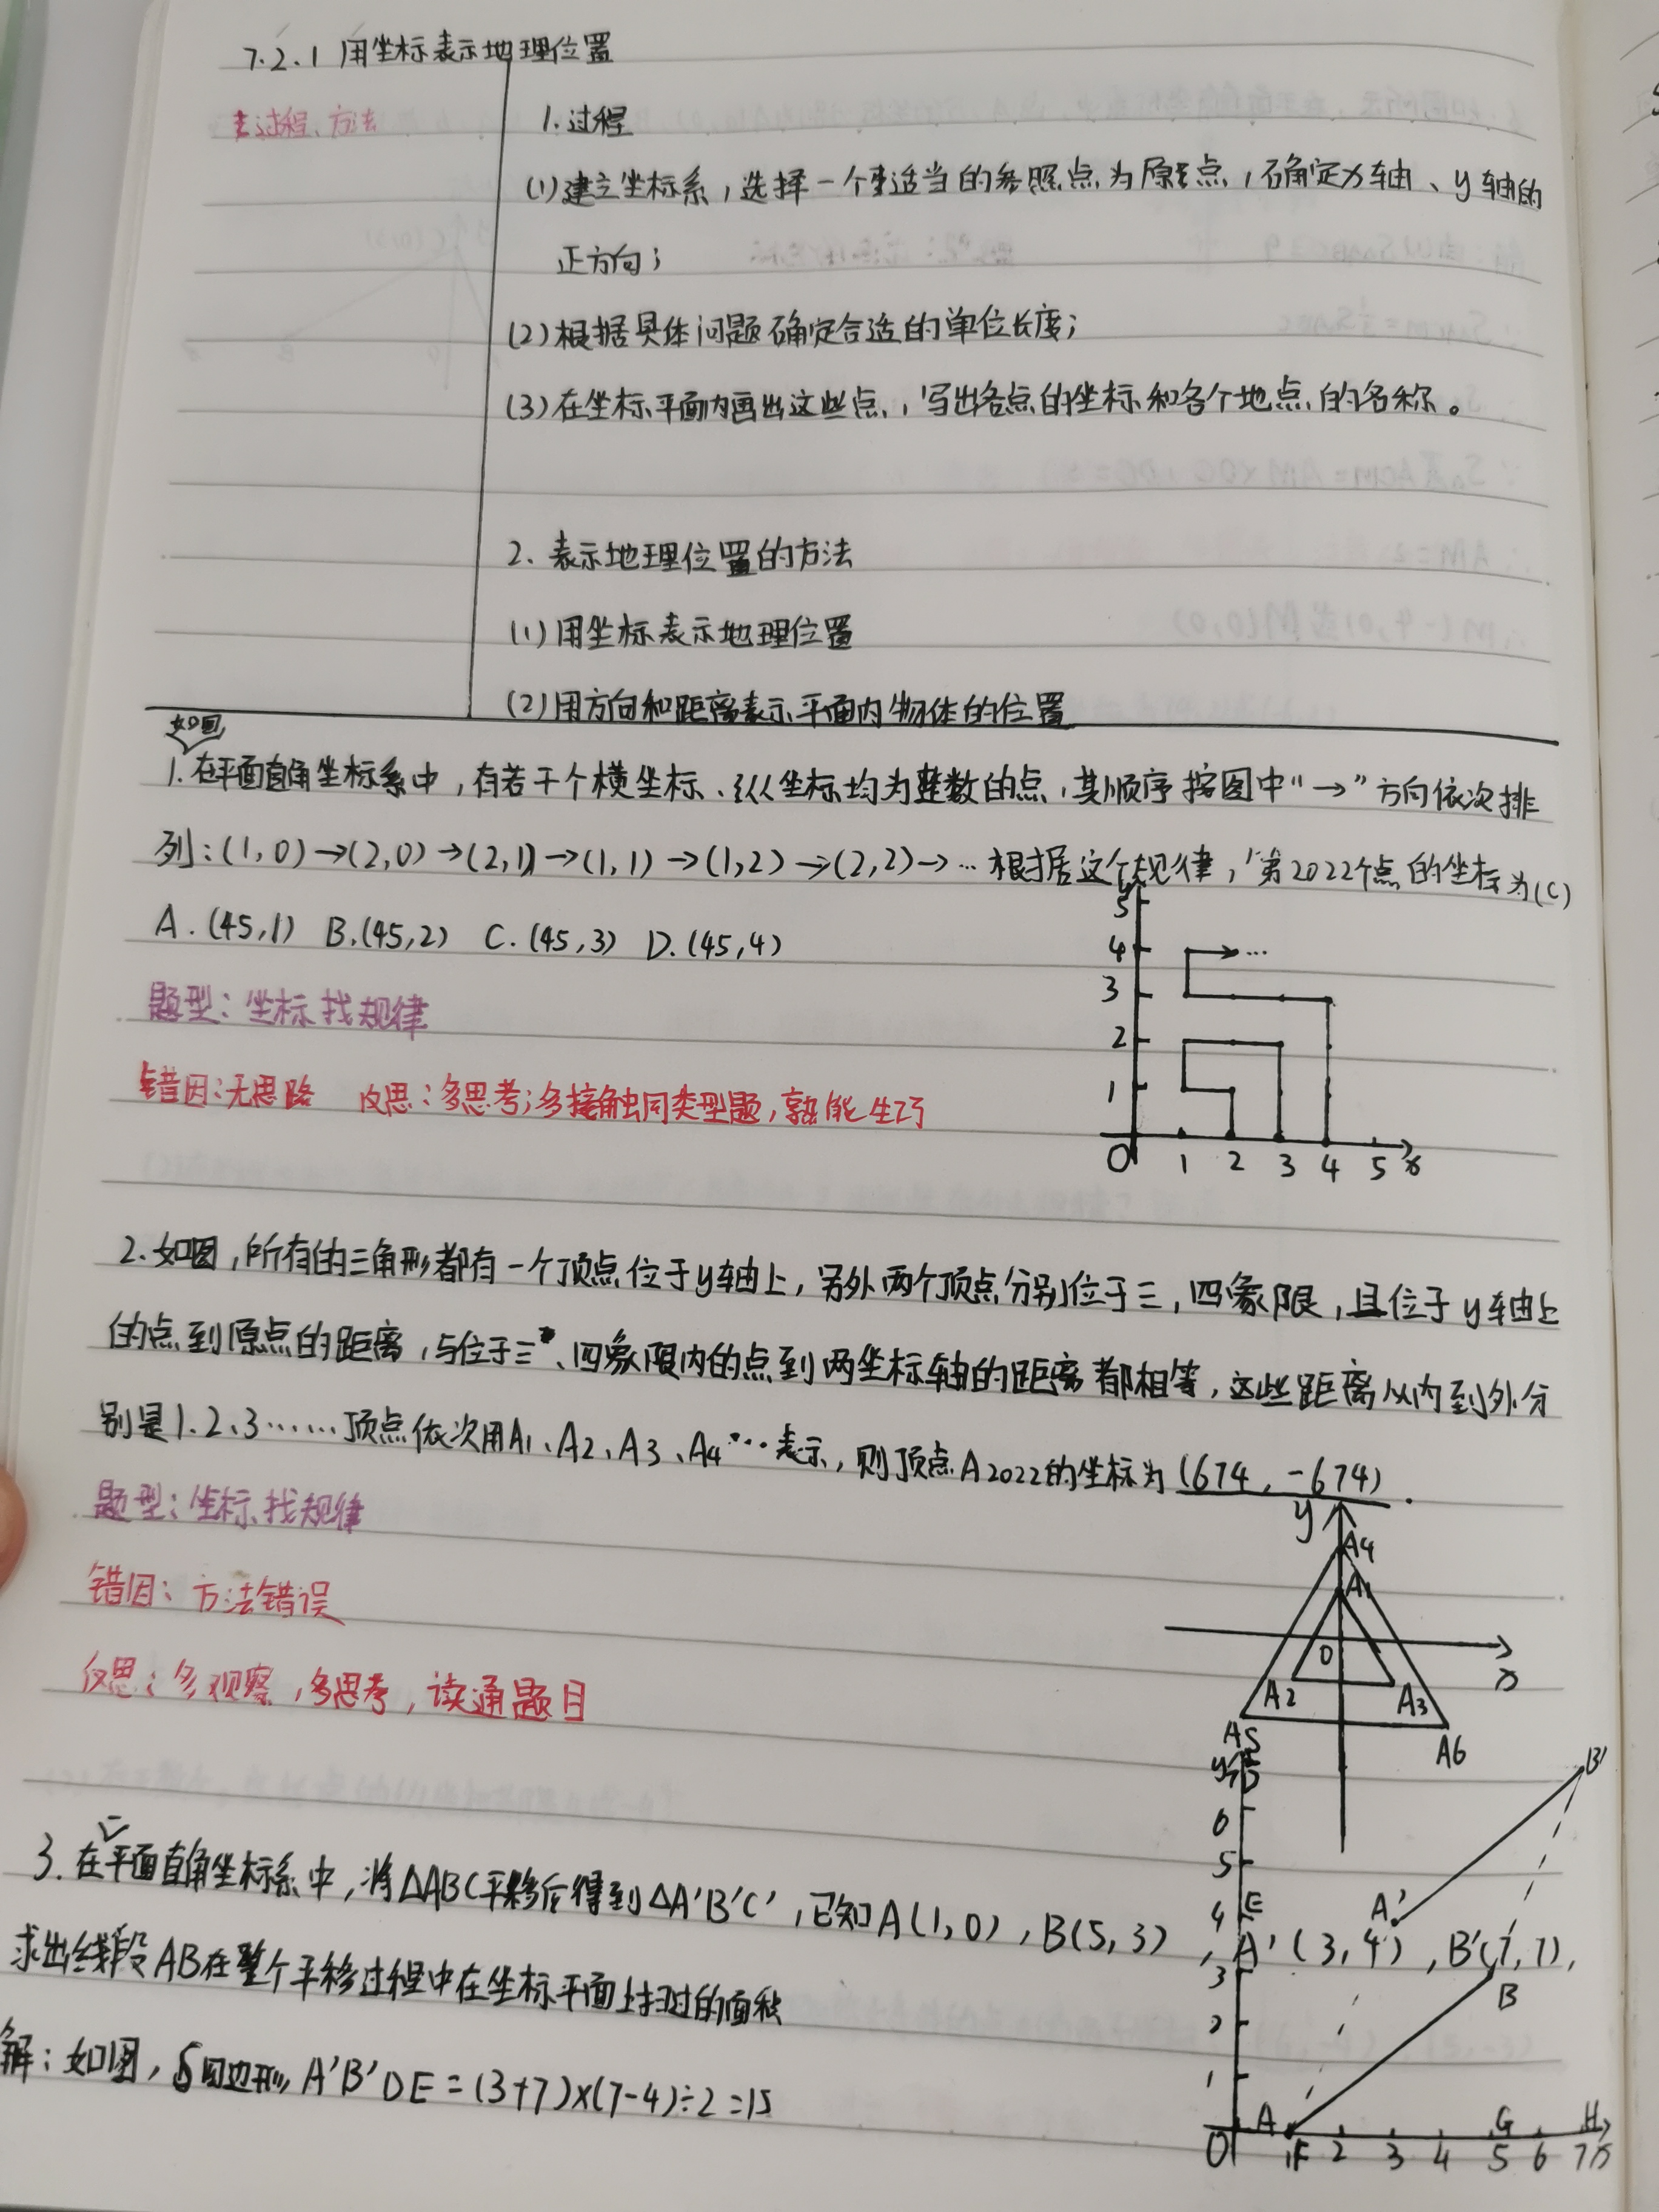 7.2.1 用坐标表示地理位置
过程、方法
1.过程
(1)建立坐标系,选择一个适当的参照点为原点,确定x轴、y轴的
正方向;
(2)根据具体问题确定合适的单位长度;
(3)在坐标平面内画出这些点,写出各点的坐标和各个地点的名称。
2.表示地理位置的方法
(1)用坐标表示地理位置
(2)用方向和距离表示平面内物体的位置
如图
1.在平面直角坐标系中,有若干个横坐标、纵坐标均为整数的点,其顺序按图中"→"方向依次排
列:(1,0)→(2,0)→(2,1)→(1,1)→(1,2)→(2,2)→…根据这个规律,第2022个点的坐标为(C)
A.(45,1) B.(45,2) C.(45,3) D.(45,4)
y
5
4
…
3
2
1
O 1 2 3 4 5 x
题型:坐标找规律
错因:无思路 反思:多思考;多接触同类型题,熟能生巧
2.如图,所有的三角形都有一个顶点位于y轴上,另外两个顶点分别位于三,四象限,且位于y轴上
的点到原点的距离,与位于三、四象限内的点到两坐标轴的距离都相等,这些距离从内到外分
别是1.2、3……顶点依次用A1、A2、A3、A4…表示,则顶点A2022的坐标为(674,-674).
题型:坐标找规律
错因:方法错误
反思:多观察,多思考,读通题目
y
A4
A1
O
x
A2 A3
A5 A6
3.在平面直角坐标系中,将△ABC平移后得到△A'B'C',已知A(1,0),B(5,3),A'(3,4),B'(7,7),
求出线段AB在整个平移过程中在坐标平面上扫过的面积
解:如图,S四边形A'B'DE=(3+7)×(7-4)÷2=15
y
D
B'
6
5
4 E
A'
3
B
2
1
A G H
O 1F 2 3 4 5 6 7 x